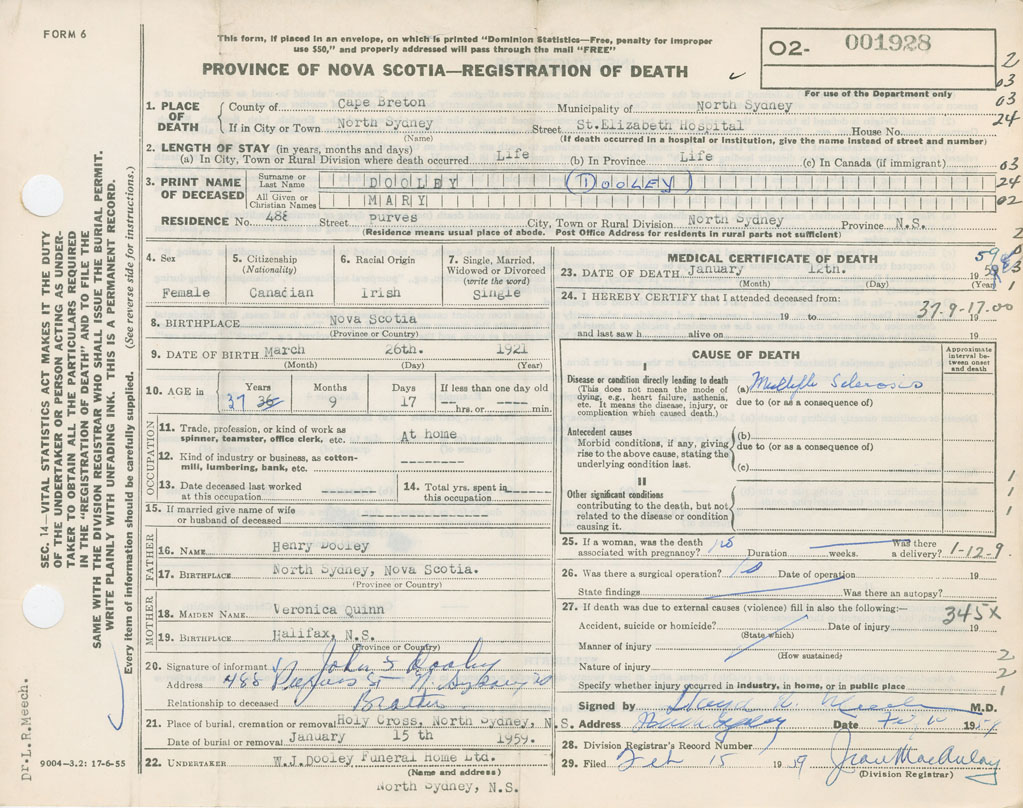 FORM 6
This form, if placed in an envelope, on which is printed "Dominion Statistics—Free, penalty for improper
use $50," and properly addressed will pass through the mail "FREE"
PROVINCE OF NOVA SCOTIA—REGISTRATION OF DEATH
O2- 001928
For use of the Department only
2
03
03
24
1. PLACE OF DEATH
County of Cape Breton Municipality of North Sydney
If in City or Town North Sydney Street St.Elizabeth Hospital House No.
(Name) (If death occurred in a hospital or institution, give the name instead of street and number)
2. LENGTH OF STAY (in years, months and days)
(a) In City, Town or Rural Division where death occurred Life (b) In Province Life (c) In Canada (if immigrant)
03
3. PRINT NAME OF DECEASED
Surname or Last Name DOOLEY (DOOLEY)
24
All Given or Christian Names MARY
02
RESIDENCE No. 488 Street Purves City, Town or Rural Division North Sydney Province N.S.
(Residence means usual place of abode. Post Office Address for residents in rural parts not sufficient)
4. Sex
Female
5. Citizenship
(Nationality)
Canadian
6. Racial Origin
Irish
7. Single, Married,
Widowed or Divorced
(write the word)
Single
8. BIRTHPLACE Nova Scotia
(Province or Country)
9. DATE OF BIRTH March 26th. 1921
(Month) (Day) (Year)
10. AGE in
Years Months Days If less than one day old
37 36 9 17 -- hrs. or -- min.
OCCUPATION
11. Trade, profession, or kind of work as
spinner, teamster, office clerk, etc. At home
12. Kind of industry or business, as cotton-
mill, lumbering, bank, etc. --------
13. Date deceased last worked
at this occupation --------
14. Total yrs. spent in
this occupation --------
15. If married give name of wife
or husband of deceased --------
FATHER
16. NAME Henry Dooley
17. BIRTHPLACE North Sydney, Nova Scotia.
(Province or Country)
MOTHER
18. MAIDEN NAME Veronica Quinn
19. BIRTHPLACE Halifax, N.S.
(Province or Country)
20. Signature of informant John Dooley
Address 488 Purves St N. Sydney
Relationship to deceased Brother
21. Place of burial, cremation or removal Holy Cross, North Sydney, N.S.
Date of burial or removal January 15th 1959.
22. UNDERTAKER W.J.Dooley Funeral Home Ltd.
(Name and address)
North Sydney, N.S.
MEDICAL CERTIFICATE OF DEATH
23. DATE OF DEATH January 12th. 19 59
(Month) (Day) (Year)
24. I HEREBY CERTIFY that I attended deceased from:
37-9-17-00
19 to 19
and last saw h alive on 19
CAUSE OF DEATH
Approximate
interval be-
tween onset
and death
I
Disease or condition directly leading to death
(This does not mean the mode of
dying, e.g., heart failure, asthenia,
etc. It means the disease, injury, or
complication which caused death.)
(a) Multiple Sclerosis
due to (or as a consequence of)
Antecedent causes
Morbid conditions, if any, giving
rise to the above cause, stating the
underlying condition last.
(b)
due to (or as a consequence of)
(c)
II
Other significant conditions
contributing to the death, but not
related to the disease or condition
causing it.
1
1
1
25. If a woman, was the death
associated with pregnancy? no Duration weeks. Was there
a delivery?
1-12-9
26. Was there a surgical operation? no Date of operation 19
State findings Was there an autopsy?
27. If death was due to external causes (violence) fill in also the following:—
345X
Accident, suicide or homicide? Date of injury 19
(State which)
Manner of injury
(How sustained)
2
Nature of injury
2
Specify whether injury occurred in industry, in home, or in public place
1
Signed by M.D.
Address North Sydney Date 1959
28. Division Registrar's Record Number
29. Filed Feb 15 1959 Jean MacAulay
(Division Registrar)
SEC. 14—VITAL STATISTICS ACT MAKES IT THE DUTY
OF THE UNDERTAKER OR PERSON ACTING AS UNDER-
TAKER TO OBTAIN ALL THE PARTICULARS REQUIRED
IN THE "REGISTRATION OF DEATH" AND TO FILE THE
SAME WITH THE DIVISION REGISTRAR WHO SHALL ISSUE THE BURIAL PERMIT.
WRITE PLAINLY WITH UNFADING INK. THIS IS A PERMANENT RECORD.
Every item of information should be carefully supplied. (See reverse side for instructions.)
Dr.L.R.Meech.
9004-3.2: 17-6-55